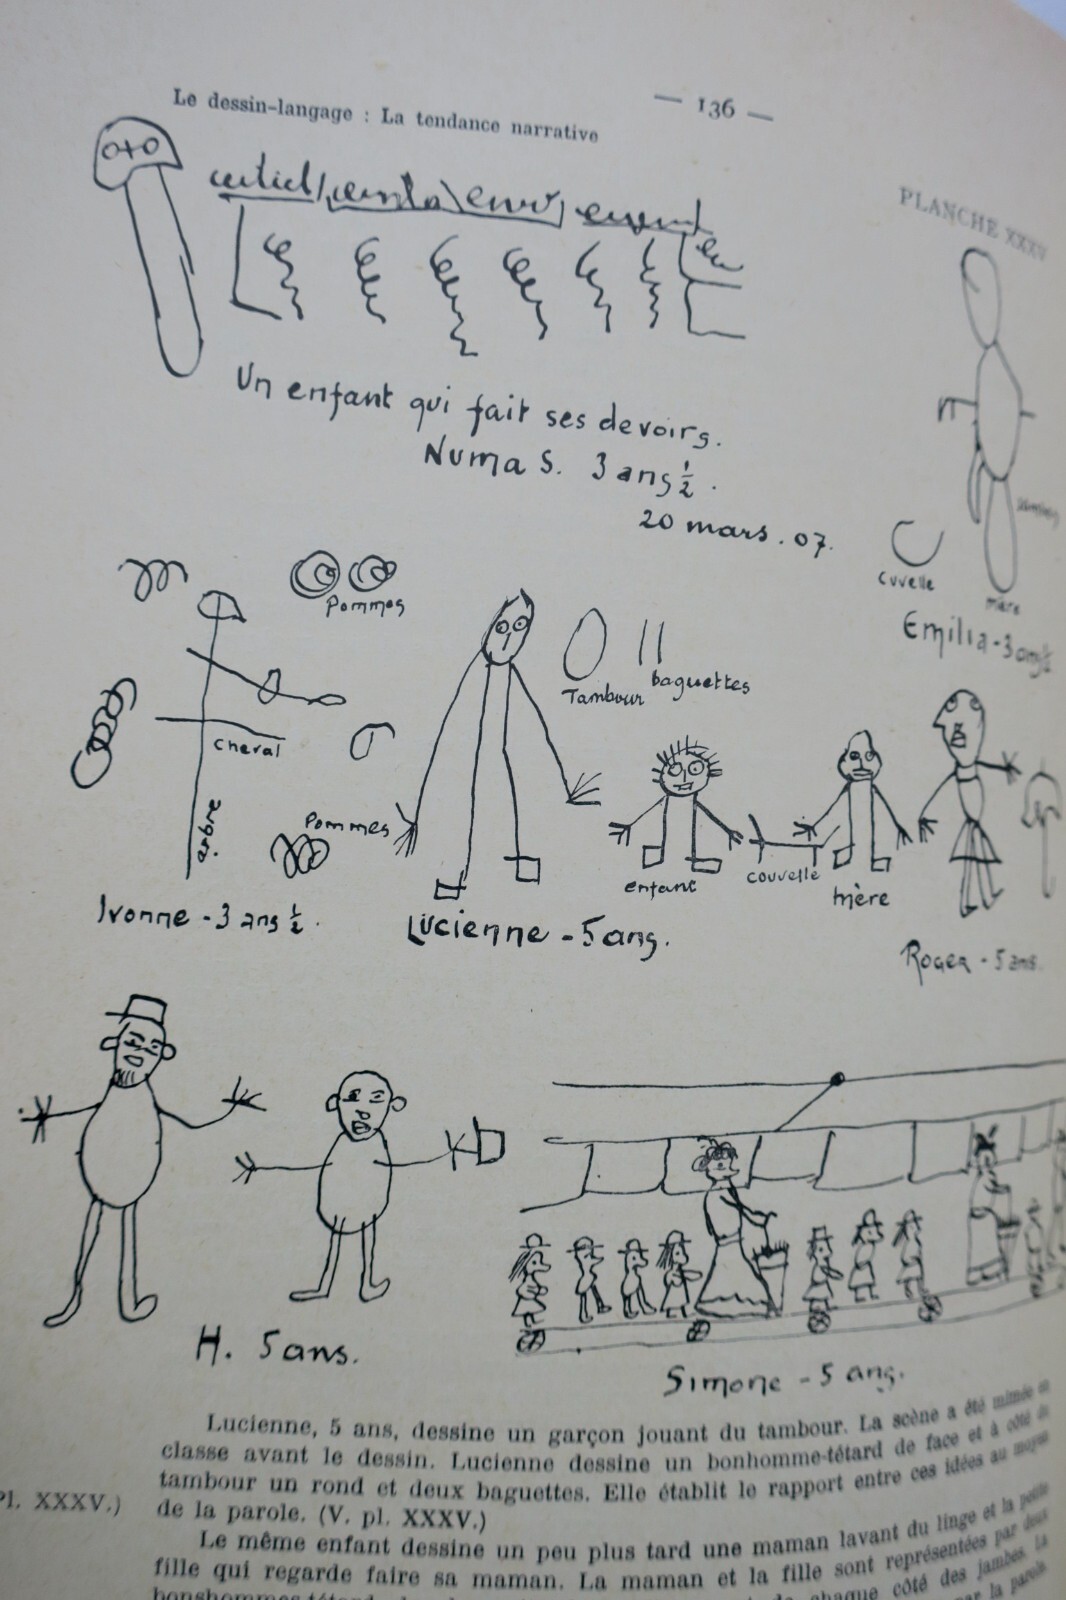 — 136 —
Le dessin-langage : La tendance narrative
PLANCHE XXXV
Un enfant qui fait ses devoirs.
Numa S. 3 ans ½.
20 mars. 07.
cuvelle
mère
Emilia - 3 ans ½
Pommes
Tambour
baguettes
cheval
arbre
Pommes
enfant
couvelle
mère
Ivonne - 3 ans ½.
Lucienne - 5 ans.
Roger - 5 ans.
H. 5 ans.
Simone - 5 ans.
Lucienne, 5 ans, dessine un garçon jouant du tambour. La scène a été mimée en
classe avant le dessin. Lucienne dessine un bonhomme-têtard de face et à côté du
tambour un rond et deux baguettes. Elle établit le rapport entre ces idées au moyen
Pl. XXXV.)
de la parole. (V. pl. XXXV.)
Le même enfant dessine un peu plus tard une maman lavant du linge et la petite
fille qui regarde faire sa maman. La maman et la fille sont représentées par deux
chaque côté des jambes. La
par la parole